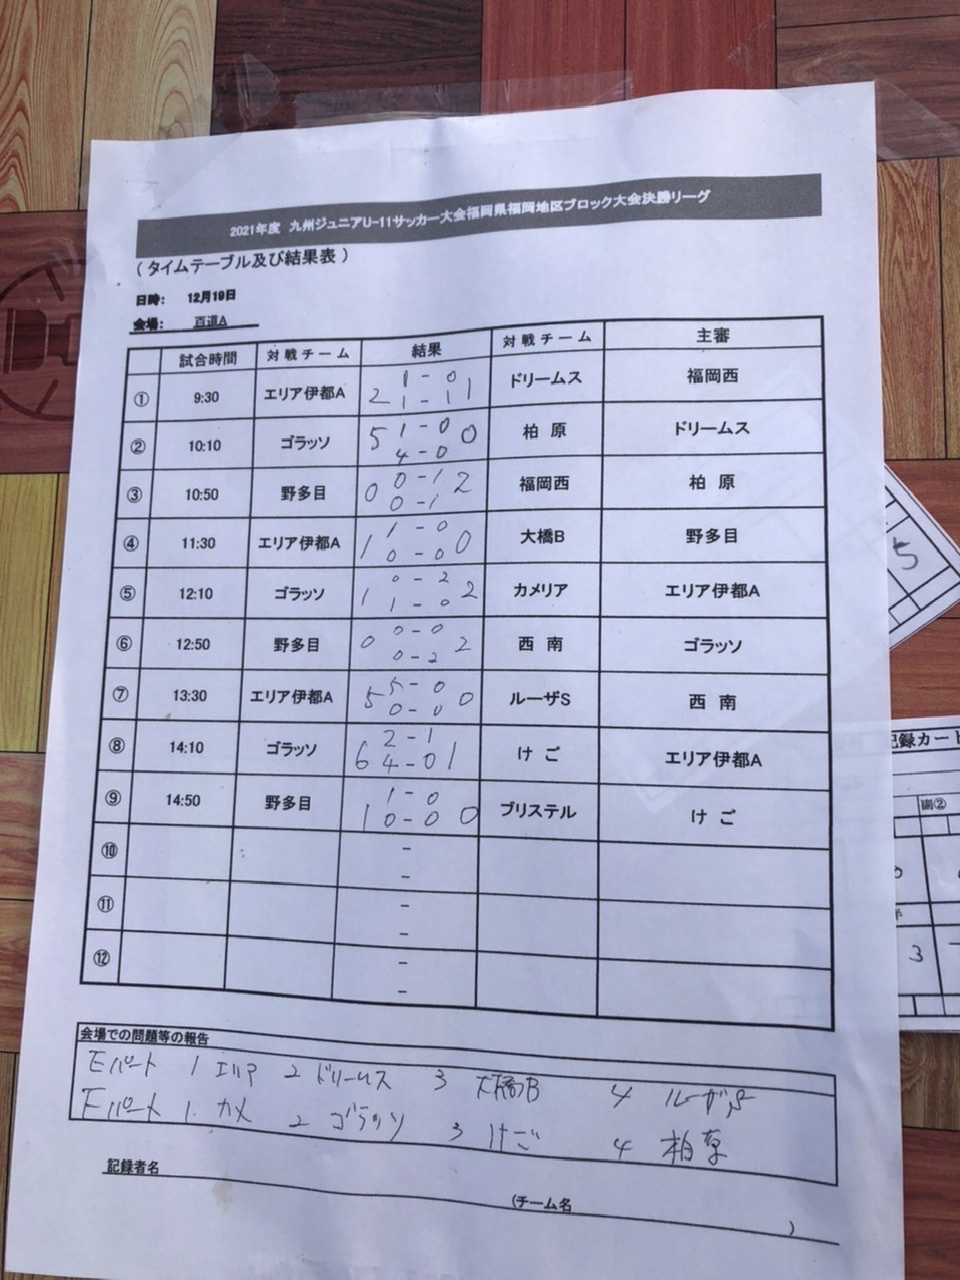 2021年度 九州ジュニアU-11サッカー大会福岡県福岡地区ブロック大会決勝リーグ
（タイムテーブル及び結果表）
日時： 12月19日
会場： 百道A
試合時間 対戦チーム 結果 対戦チーム 主審
① 9:30 エリア伊都A 2 1-0 1-1 1 ドリームス 福岡西
② 10:10 ゴラッソ 5 1-0 4-0 0 柏原 ドリームス
③ 10:50 野多目 0 0-1 0-1 2 福岡西 柏原
④ 11:30 エリア伊都A 1 1-0 0-0 0 大橋B 野多目
⑤ 12:10 ゴラッソ 1 0-2 1-0 2 カメリア エリア伊都A
⑥ 12:50 野多目 0 0-0 0-2 2 西南 ゴラッソ
⑦ 13:30 エリア伊都A 5 5-0 0-0 0 ルーザS 西南
⑧ 14:10 ゴラッソ 6 2-1 4-0 1 けご エリア伊都A
⑨ 14:50 野多目 1 1-0 0-0 0 ブリステル けご
⑩ - -
⑪ - -
⑫ - -
会場での問題等の報告
Eパート 1 エリア 2 ドリームス 3 大橋B 4 ルーザS
Fパート 1. カメ 2 ゴラッソ 3 けご 4 柏原
記録者名
(チーム名 )
5
記録カード
副②
3